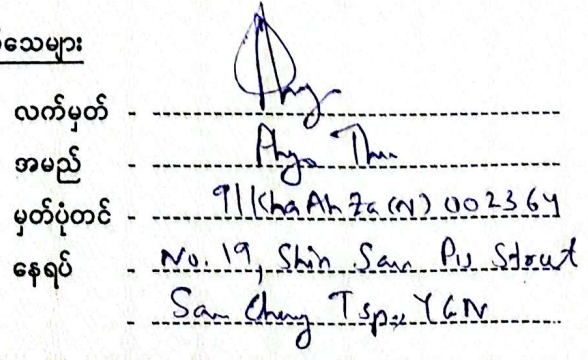 သေများ
လက်မှတ် -
အမည် - Phyo Thu
မှတ်ပုံတင် - 9/KhaAhZa (N) 002364
နေရပ် - No. 19, Shin Saw Pu Street
San Chaung Tsp, YGN